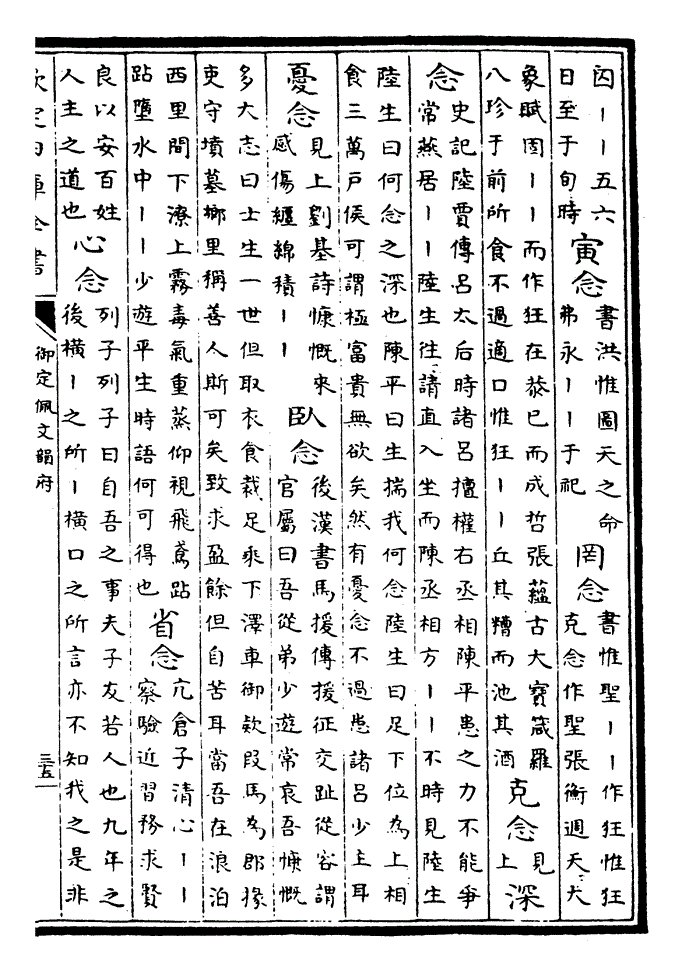 囚丨丨五六
日至于旬時
寅念
書洪惟圖天之命
弗永丨丨于祀
罔念
書惟聖丨丨作狂惟狂
克念作聖張衡週天大
象賦罔丨丨而作狂在恭已而成哲張藴古大寶箴羅
八珍于前所食不過適口惟狂丨丨丘其糟而池其酒
克念
見
上
深
念
史記陸賈傳呂太后時諸呂擅權右丞相陳平患之力不能爭
常燕居丨丨陸生往請直入坐而陳丞相方丨丨不時見陸生
陸生曰何念之深也陳平曰生揣我何念陸生曰足下位為上相
食三萬户侯可謂極富貴無欲矣然有憂念不過患諸呂少主耳
憂念
見上劉基詩慷慨來
感傷纏綿積丨丨
臥念
後漢書馬援傳援征交趾從容謂
官屬曰吾從弟少遊常哀吾慷慨
多大志曰士生一世但取衣食裁足乘下澤車御欵段馬為郡掾
吏守墳墓鄉里稱善人斯可矣致求盈餘但自苦耳當吾在浪泊
西里間下潦上霧毒氣重蒸仰視飛鳶跕
跕墮水中丨丨少遊平生時語何可得也
省念
亢倉子清心丨丨
察驗近習務求賢
良以安百姓
人主之道也
心念
列子列子曰自吾之事夫子友若人也九年之
後橫丨之所丨橫口之所言亦不知我之是非
欽定四庫全書
御定佩文韻府
三五